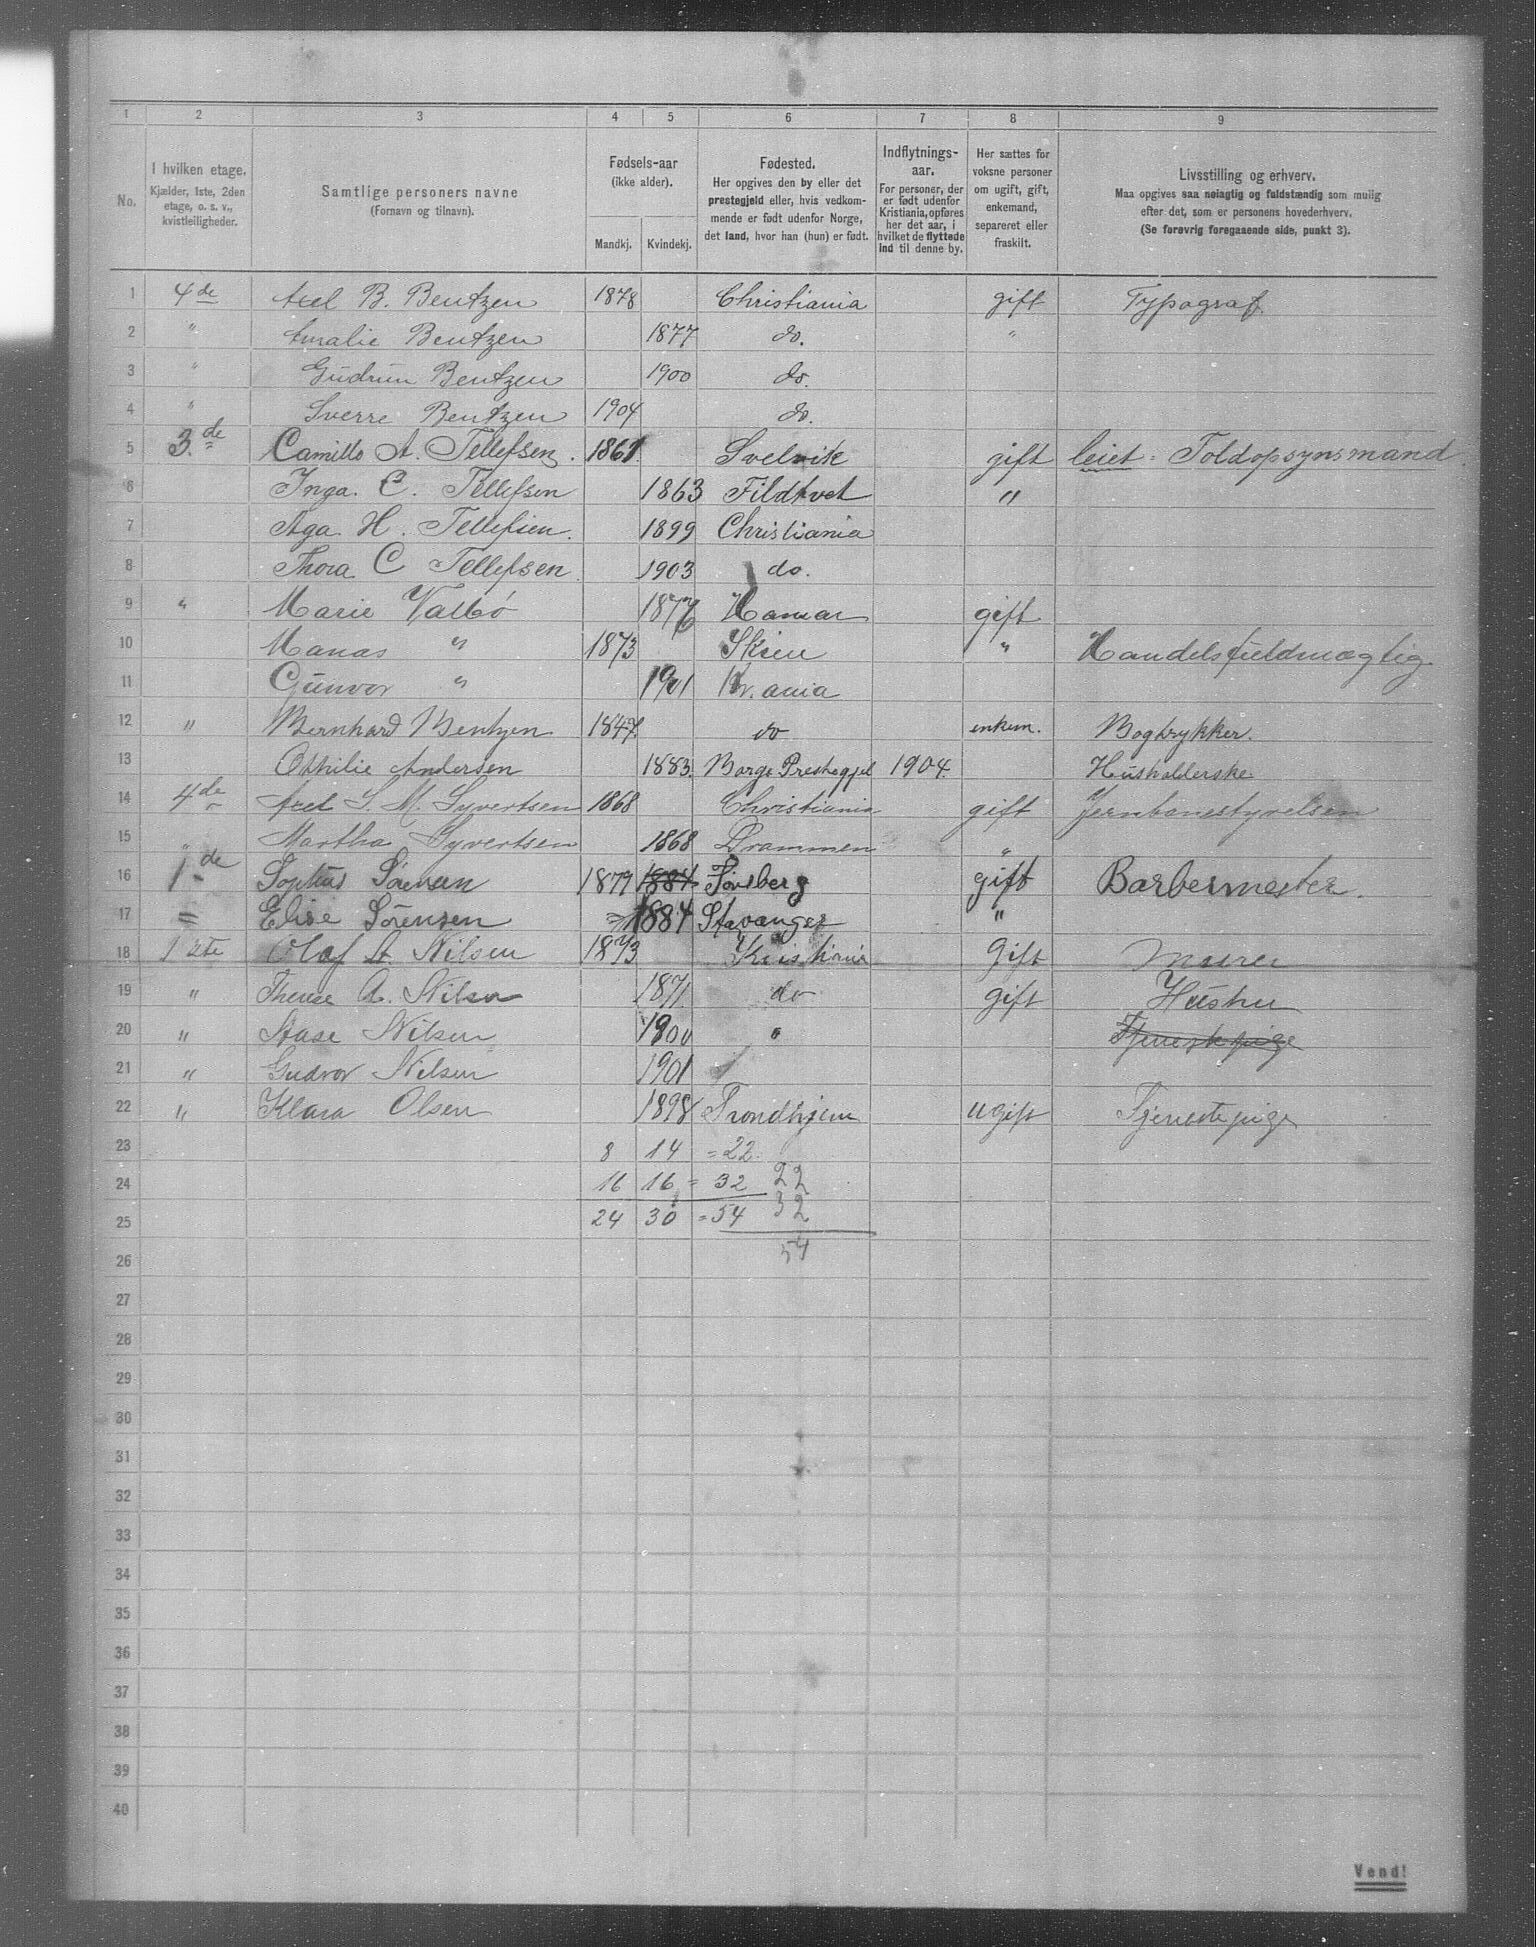 1 2 3 4 5 6 7 8 9
No.
I hvilken etage.
Kjælder, 1ste, 2den
etage, o. s. v.,
kvistleiligheder.
Samtlige personers navne
(Fornavn og tilnavn).
Fødsels-aar
(ikke alder).
Mandkj. Kvindekj.
Fødested.
Her opgives den by eller det
prestegjeld eller, hvis vedkom-
mende er født udenfor Norge,
det land, hvor han (hun) er født.
Indflytnings-
aar.
For personer, der
er født udenfor
Kristiania, opføres
her det aar, i
hvilket de flyttede
ind til denne by.
Her sættes for
voksne personer
om ugift, gift,
enkemand,
separeret eller
fraskilt.
Livsstilling og erhverv.
Maa opgives saa nøiagtig og fuldstændig som mulig
efter det, som er personens hovederhverv.
(Se forøvrig foregaaende side, punkt 3).
1 4de Axel B. Bentzen 1878 Christiania gift Typograf
2 " Amalie Bentzen 1877 do. "
3 " Gudrun Bentzen 1900 do.
4 " Sverre Bentzen 1904 do.
5 3.de Camillo A. Tellefsen. 1861. Svelvik gift leiet. Toldopsynsmand.
6 Inga. C. Tellefsen 1863 Fildtvet "
7 Aga. H. Tellefsen. 1899 Christiania
8 Thora C Tellefsen 1903 do.
9 " Marie Valbö Hamar gift
10 Manas " 1873 Skien " Handelsfuldmægtig
11 Gunvor " 1901 Kr.ania
12 " Bernhard Bentzen 1847. do enkem. Bogtrykker.
13 Othilie Andersen 1883. Borge Prestegjel 1904. Husholderske
14 4de Axel S. M. Syvertsen 1868 Christiania gift Jernbanestyrelsen
15 " Martha Syvertsen 1868 Drammen "
16 1de Sophus Sörensen 1879 1884 Tönsberg gift Barbermester.
17 = Elise Sörensen 1884 Stavanger "
18 1ste Olaf A. Nilsen 1873 Kristiania Gift Murer
19 " Therese A. Nilsen 1871 do gift Hustru
20 " Aase Nilsen 1900 " Tjenestepige
21 " Gudvor Nilsen 1901
22 " Klara Olsen 1898 Trondhjem ugift Tjenestepige
23 8 14 = 22.
24 16 16 = 32 22
25 24 30 = 54 32
26 54
27
28
29
30
31
32
33
34
35
36
37
38
39
40
Vend!